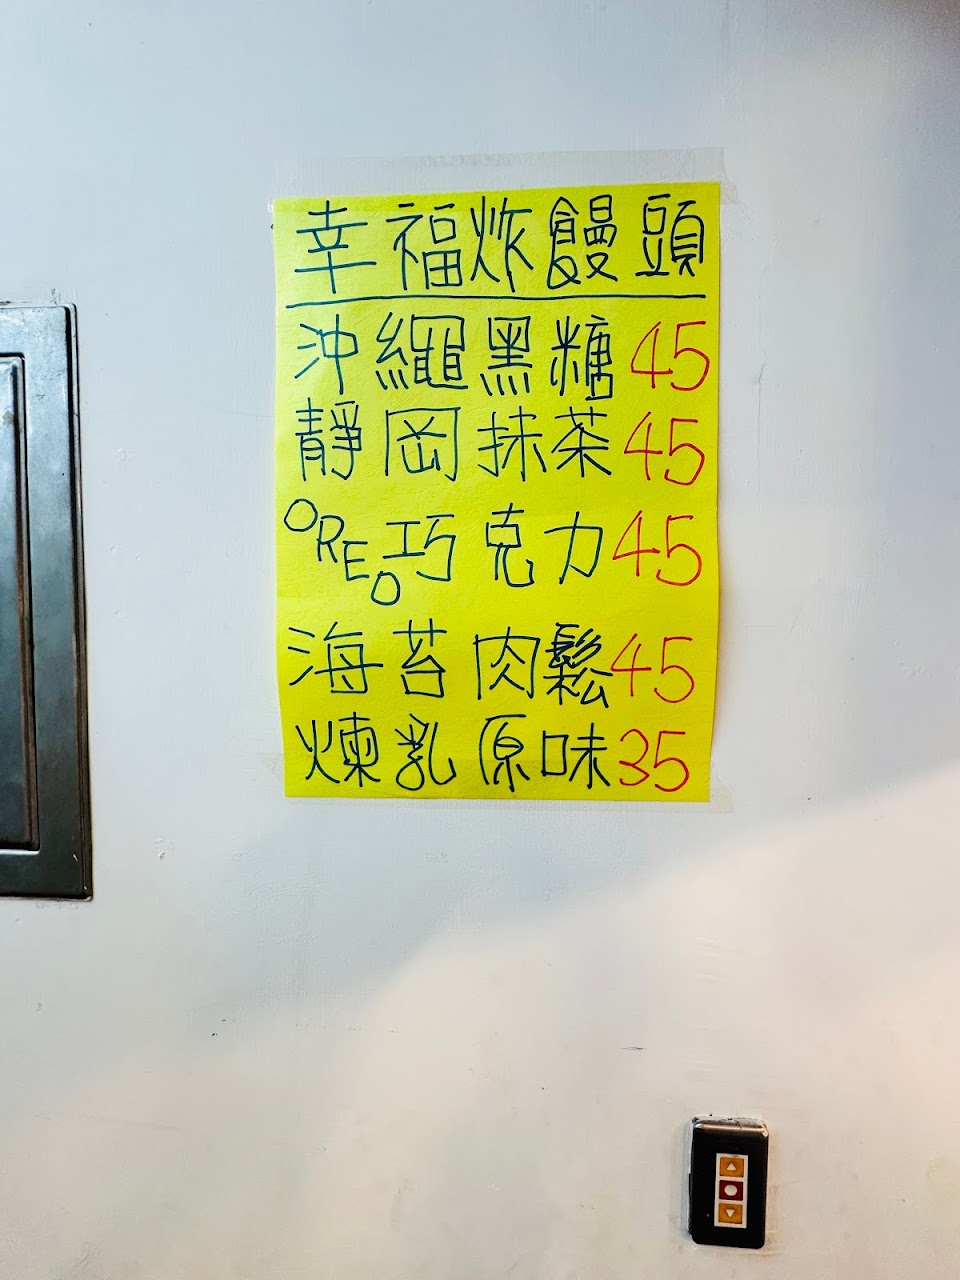 幸福炸饅頭
沖繩黑糖45
靜岡抹茶45
OREO巧克力45
海苔肉鬆45
煉乳原味35